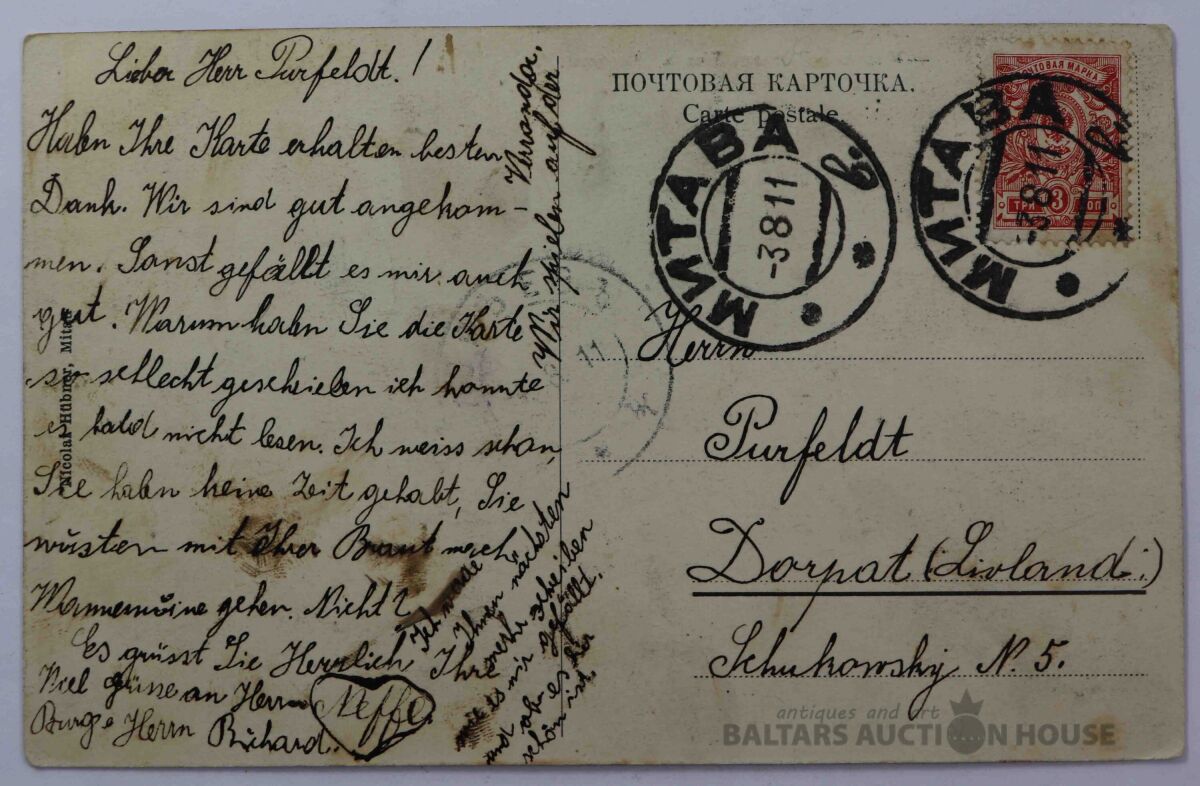 Lieber Herr Purfeldt!
Haben Ihre Karte erhalten besten
Dank. Wir sind gut angekom-
men. Sonst gefällt es mir auch
gut. Warum haben Sie die Karte
so schlecht geschrieben ich konnte
es bald nicht lesen. Ich weiss schon,
Sie haben keine Zeit gehabt, Sie
wüsten mit Ihrer Braut nach
gehen. Nicht?
Es grüsst Sie Herzlich Ihre
Neffe.
Viel grüsse an Herrn
Herrn Richard.
Ich werde
Ihnen nächsten
mehr schreiben
wie es mir gefällt.
und ob es hier
schön ist.
Wir spielen auf der
Veranda.
Nicolai Hübner, Mitau
ПОЧТОВАЯ КАРТОЧКА.
Carte postale.
ПОЧТОВАЯ МАРКА
ТРИ 3 КОП
МИТАВА
-3811
МИТАВА
-3811
11
Herrn
Purfeldt
Dorpat (Livland.)
Schukowsky N. 5.
antiques and art
BALTARS AUCTION HOUSE